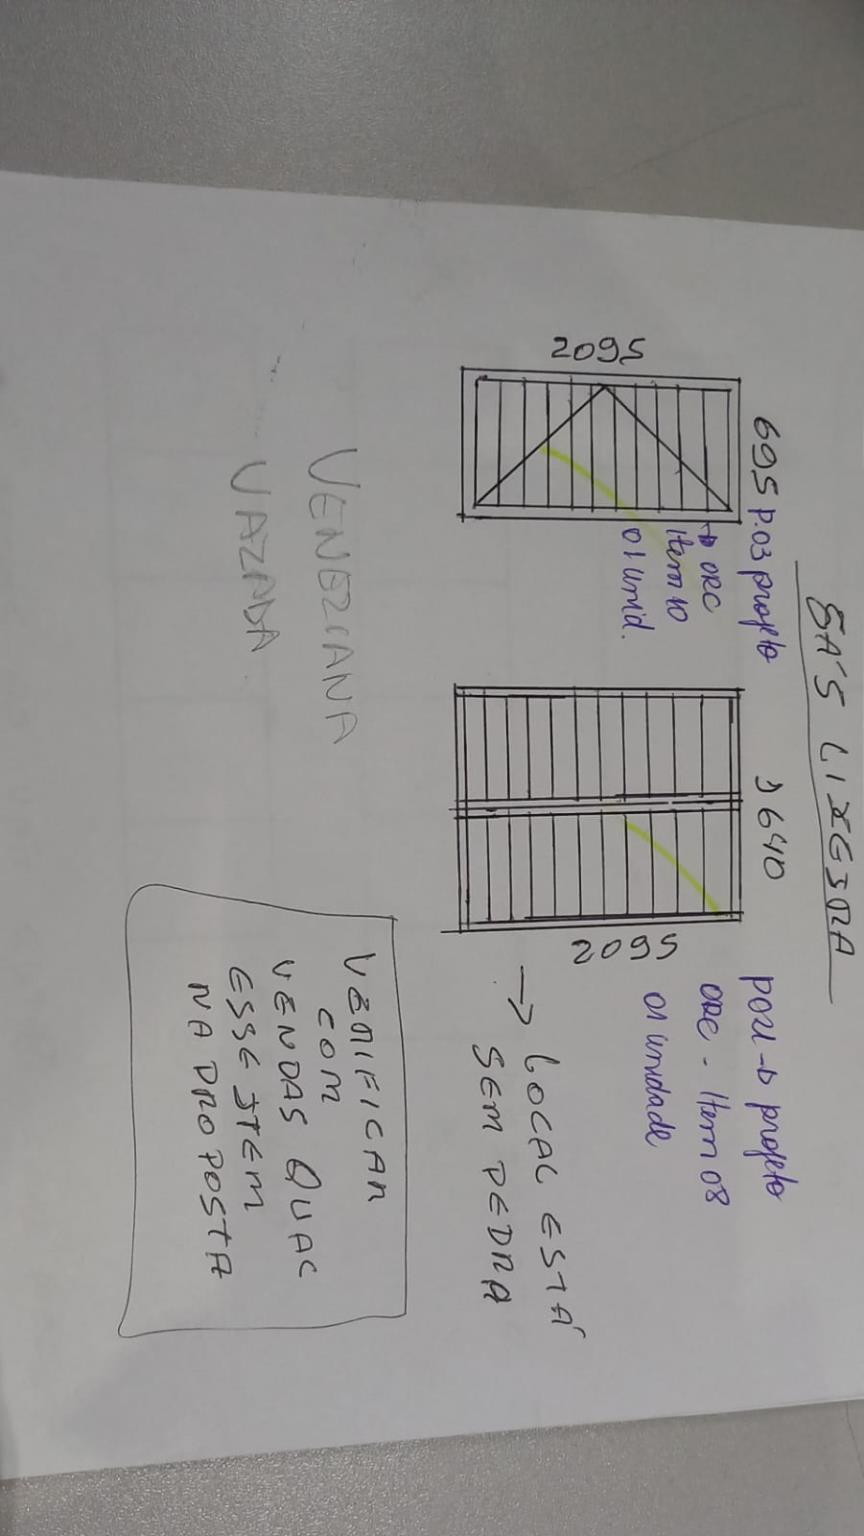 SA'S LIXEIRA
695 P.03 projeto
→ ORC
Item 10
01 unid.
2095
1640
P02 → projeto
ORC - Item 08
01 unidade
2095
→ LOCAL ESTÁ
SEM PEDRA
VENEZIANA
VAZADA
VERIFICAR
COM
VENDAS QUAL
ESSE ITEM
NA PROPOSTA